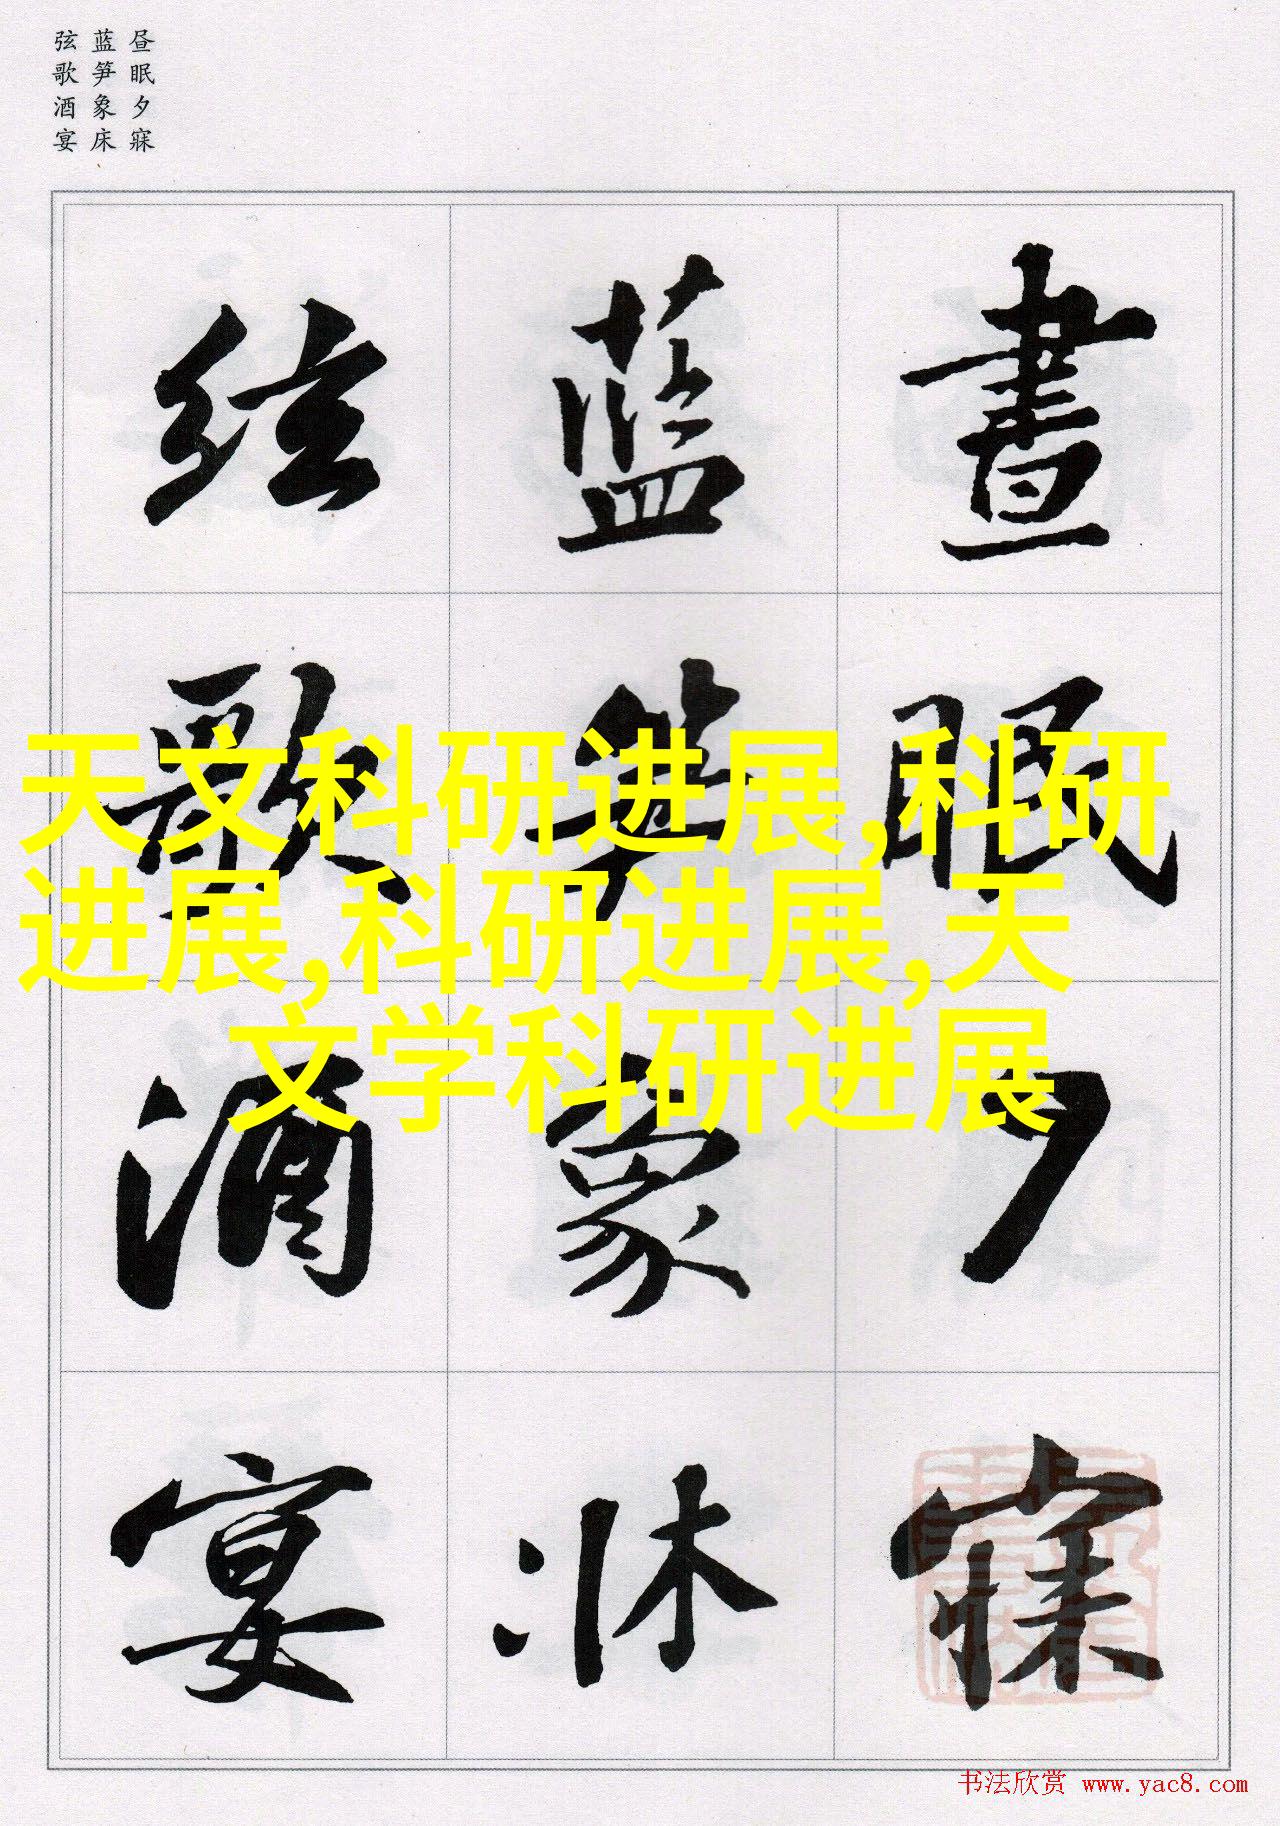 昼眠夕寐
蓝笋象床
弦歌酒宴
晝眠夕寐
蓝笋象床
弦歌酒宴
天文科研进展,科研
进展,科研进展,天
文学科研进展
书法欣赏 www.yac8.com